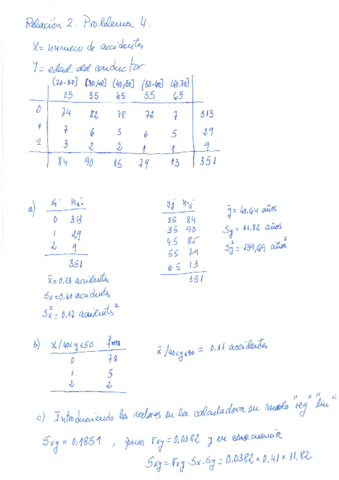 Relación 2. Problema 4.
X= número de accidentes
Y= edad del conductor
(20-30] (30,40] (40,50] (50-60] (60,70]
25 35 45 55 65
0 74 82 78 72 7 313
1 7 6 5 6 5 29
2 3 2 2 1 1 9
84 90 85 79 13 351
a) xi ni.
0 313
1 29
2 9
351
x̄ = 0.13 accidentes
Sx = 0.41 accidentes
Sx² = 0.17 accidentes²
yj n.j
25 84
35 90
45 85
55 79
65 13
351
ȳ = 40.64 años
Sy = 11.82 años
Sy² = 139,69 años²
b) X/40<y≤50
0 78
1 5
2 2
x̄/40<y≤50 = 0.11 accidentes
c) Introduciendo los valores en la calculadora en modo "reg" "lin"
Sxy = 0,1851, pues rxy = 0,0382 y en consecuencia
Sxy = rxy · Sx · Sy = 0,0382 × 0,41 × 11,82